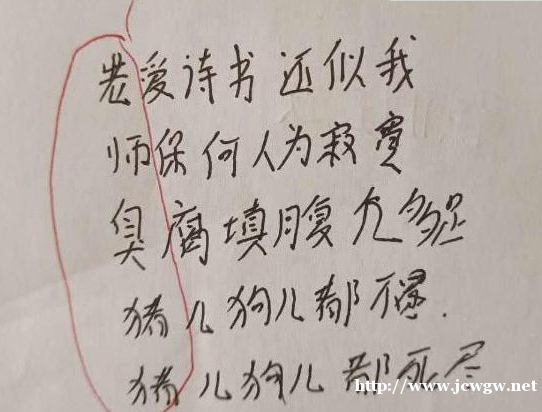 老爱诗书还似我
师保何人为寂寞
臭腐填腹九多足
猪儿狗儿都不
猪儿狗儿都死尽
http://www.jcwgw.net